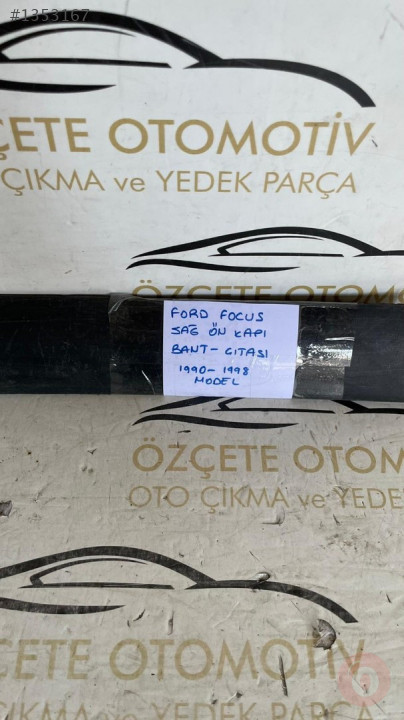 #1353167
ÇETE OTOMOTİV
ÇIKMA ve YEDEK PARÇA
FORD FOCUS
SAĞ ÖN KAPI
BANT- CITASI
1990-1998
MODEL
ÖZÇETE OTOM
OTO ÇIKMA ve YEDE
ÇETE OTOMOTİV
ÇIKMA ve YEDEK PARÇA